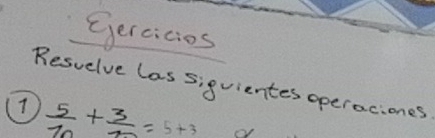 Ejercicios
Resuelve las siguientes operaciones.
① 5/10 + 3/ = 5+3